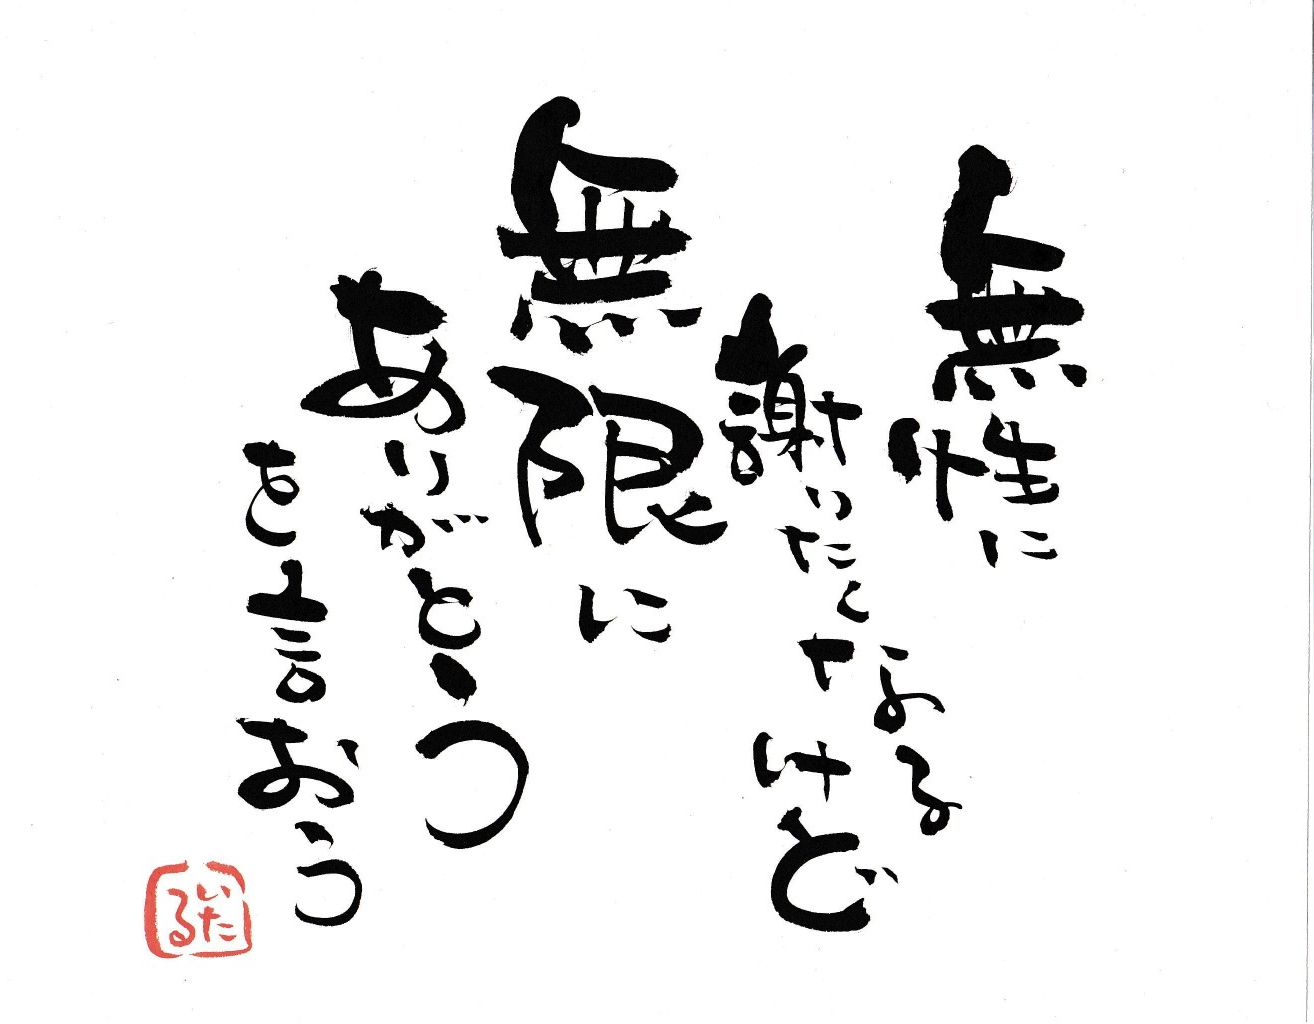 無性に
謝りたくなるけど
無限に
ありがとう
を言おう
いたる